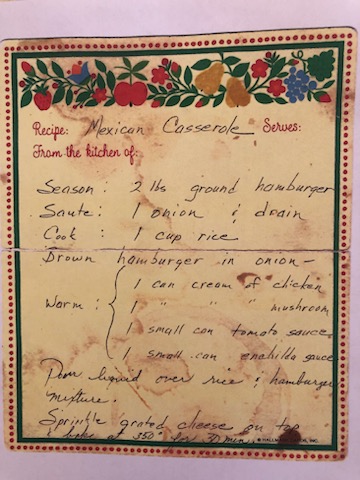 Recipe: Mexican Casserole Serves:
From the kitchen of:
Season: 2 lbs ground hamburger
Saute: 1 onion & drain
Cook: 1 cup rice
Brown hamburger in onion -
1 can cream of chicken
Warm: { 1 " " " mushroom
1 small can tomato sauce
1 small can enchilda sauce
Pour liquid over rice & hamburger
mixture.
Sprinkle grated cheese on top
& bake at 350° for 30 min.
© HALLMARK CARDS, INC.